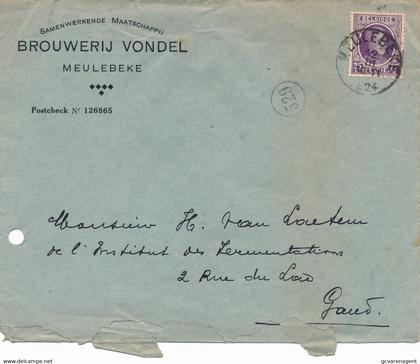 SAMENWERKENDE MAATSCHAPPIJ
BROUWERIJ VONDEL
MEULEBEKE
Postcheck Nr 126865
BELGIQUE
MEULEBEKE
24
629
Monsieur H. van Laetem
de l'Institut des Fermentations
2 Rue du
Gand.
delcampe.net
gvarenagent